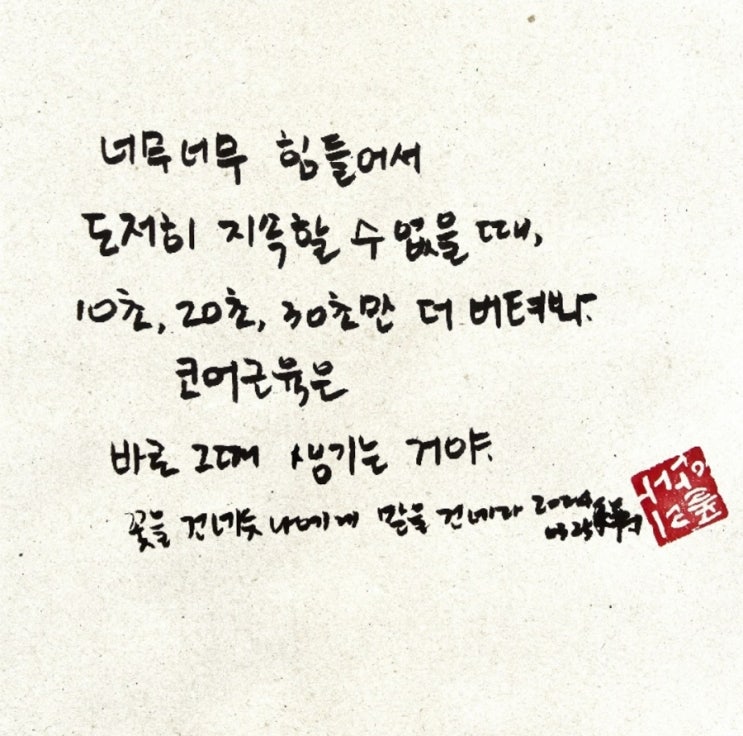 너무너무 힘들어서
도저히 지속할 수 없을 때,
10초, 20초, 30초만 더 버텨봐.
코어근육은
바로 그때 생기는 거야.
꽃을 건네듯 나에게 말을 건네라 2024
03 25